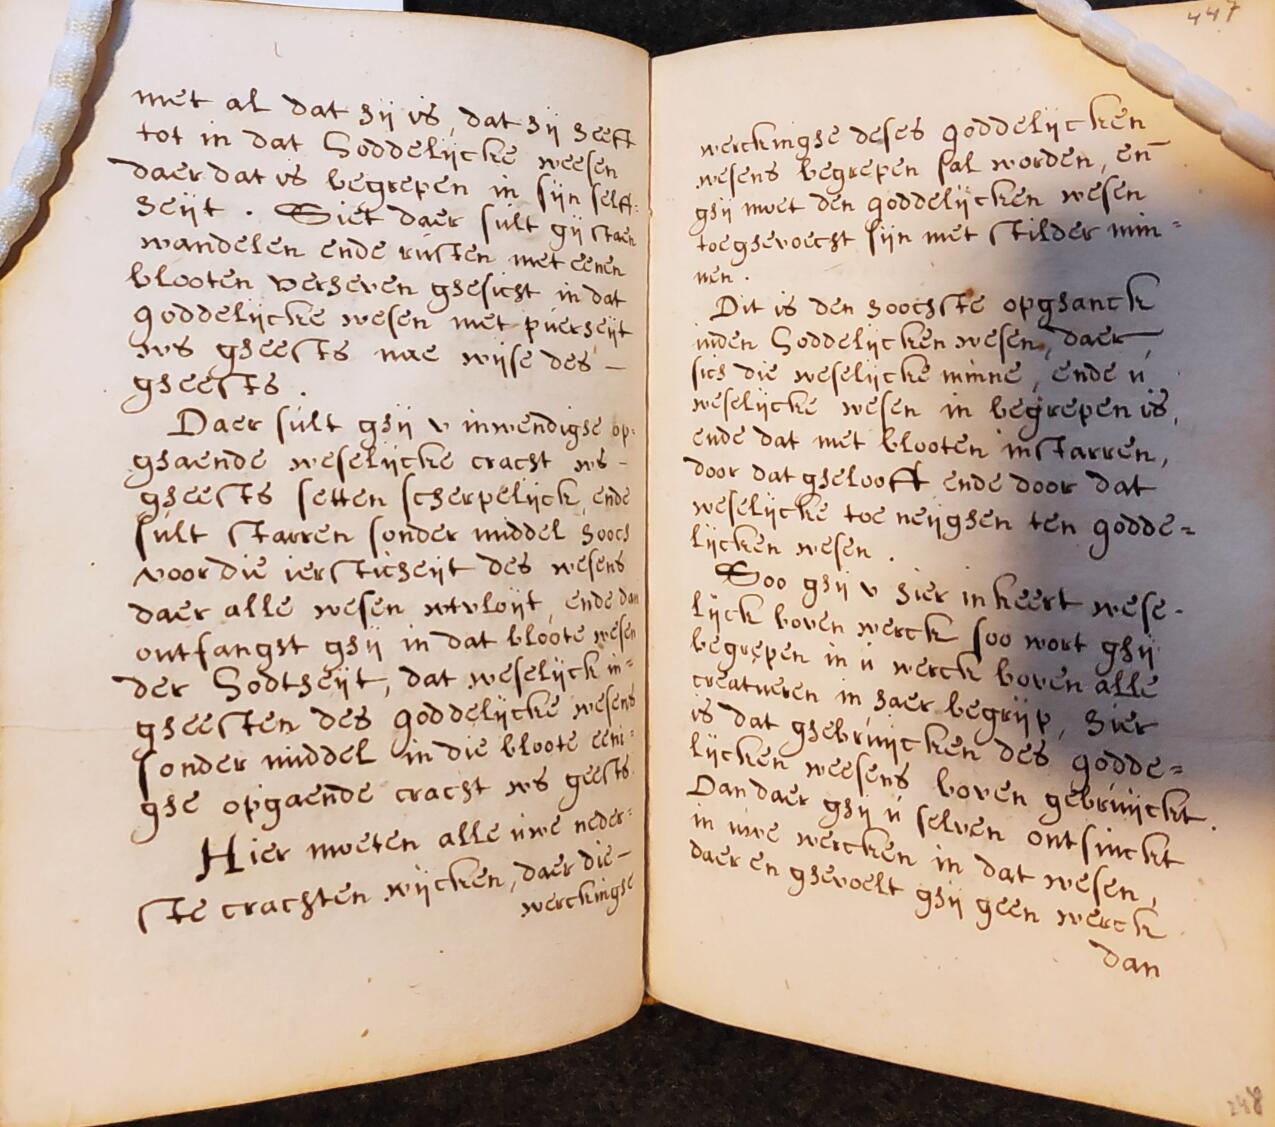 met al dat hij is, dat hij heeft
tot in dat Goddelijcke weesen
daer dat is begrepen in sijn self-
heijt. Siet daer sult gij staen
wandelen ende rusten met eenen
blooten verheven ghesicht in dat
goddelijcke wesen met puerheijt
ws gheests nae wijse des -
gheests.
Daer sult ghij v inwendighe op-
ghaende weselijcke cracht ws -
gheests setten scherpelijck, ende
sult starren sonder middel hooch
voor die iersticheijt des wesens
daer alle wesen wtvloijt, ende dan
ontfangst ghij in dat bloote wesen
der Godtheijt, dat weselijck in=
gheesten des goddelijcke wesens
sonder middel in die bloote eeni=
ghe opgaende cracht ws geests
Hier moeten alle uwe neder=
ste crachten wijcken, daer die -
werckinghe
447
werckinghe deses goddelijcken
wesens begrepen sal worden, en
ghij moet den goddelijcken wesen
toeghevoecht sijn met stilder min=
nen.
Dit is den hoochste opghanck
inden Goddelijcken wesen, daer
sich die weselijcke minne, ende u
weselijcke wesen in begrepen is,
ende dat met blooten instarren,
door dat ghelooff ende door dat
weselijcke toe neijghen ten godde=
lijcken wesen.
Soo ghij v hier inkeert wese-
lijck boven werck soo wort ghij
begrepen in u werck boven alle
creatueren in haer begrijp, hier
is dat ghebruijcken des godde=
lijcken weesens boven gebruijckt.
Dan daer ghij u selven ontsinckt
in uwe wercken in dat wesen,
daer en ghevoelt ghij geen werck
dan
248